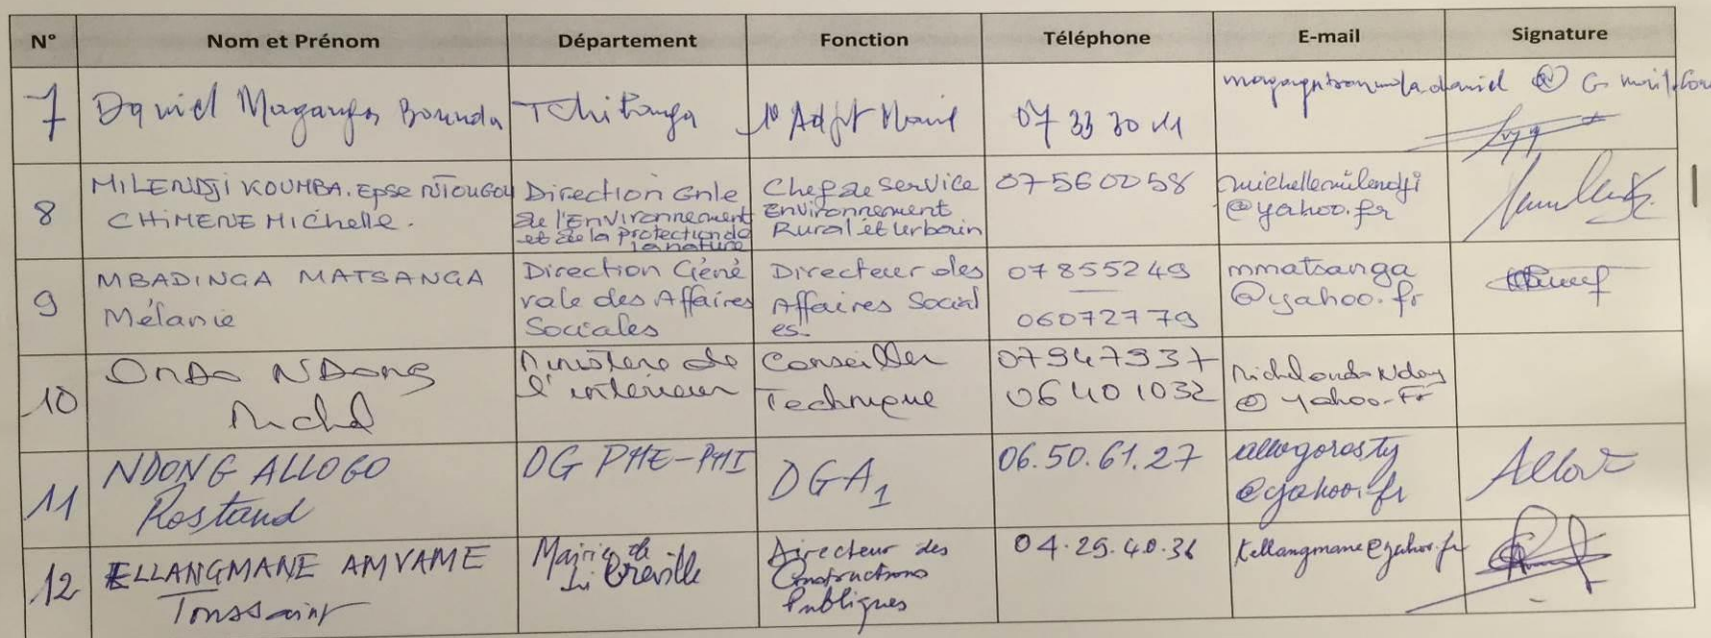 N° Nom et Prénom Département Fonction Téléphone E-mail Signature
7 Daniel Maganga Bounda Tchibanga Adjt Maire 07 33 30 11
8 MILENDJI KOUMBA. Epse NTOUGOU
CHIMENE Michelle.
Direction Gnle
de l'Environnement
et de la Protection de
la nature
Chef de service
Environnement
Rural et urbain
07560058
michellemilendji
@yahoo.fr
9 MBADINGA MATSANGA
Mélanie
Direction Géné
rale des Affaires
Sociales
Directeur des
Affaires Social
es.
07855249
06072779
mmatsanga
@yahoo.fr
10 ONDO NDONG
Michel
Ministère de
l'intérieur
Conseiller
Technique
07947937
06401032
Michelondo Ndong
@ yahoo.Fr
11 NDONG ALLOGO
Rostand
DG PME-PMI
DGA1
06.50.61.27
allogorosty
@yahoo.fr
12 ELLANGMANE AMVAME
Toussaint
Mairie de
Libreville
Directeur des
Constructions
Publiques
04.25.40.36
tellangmane@yahoo.fr